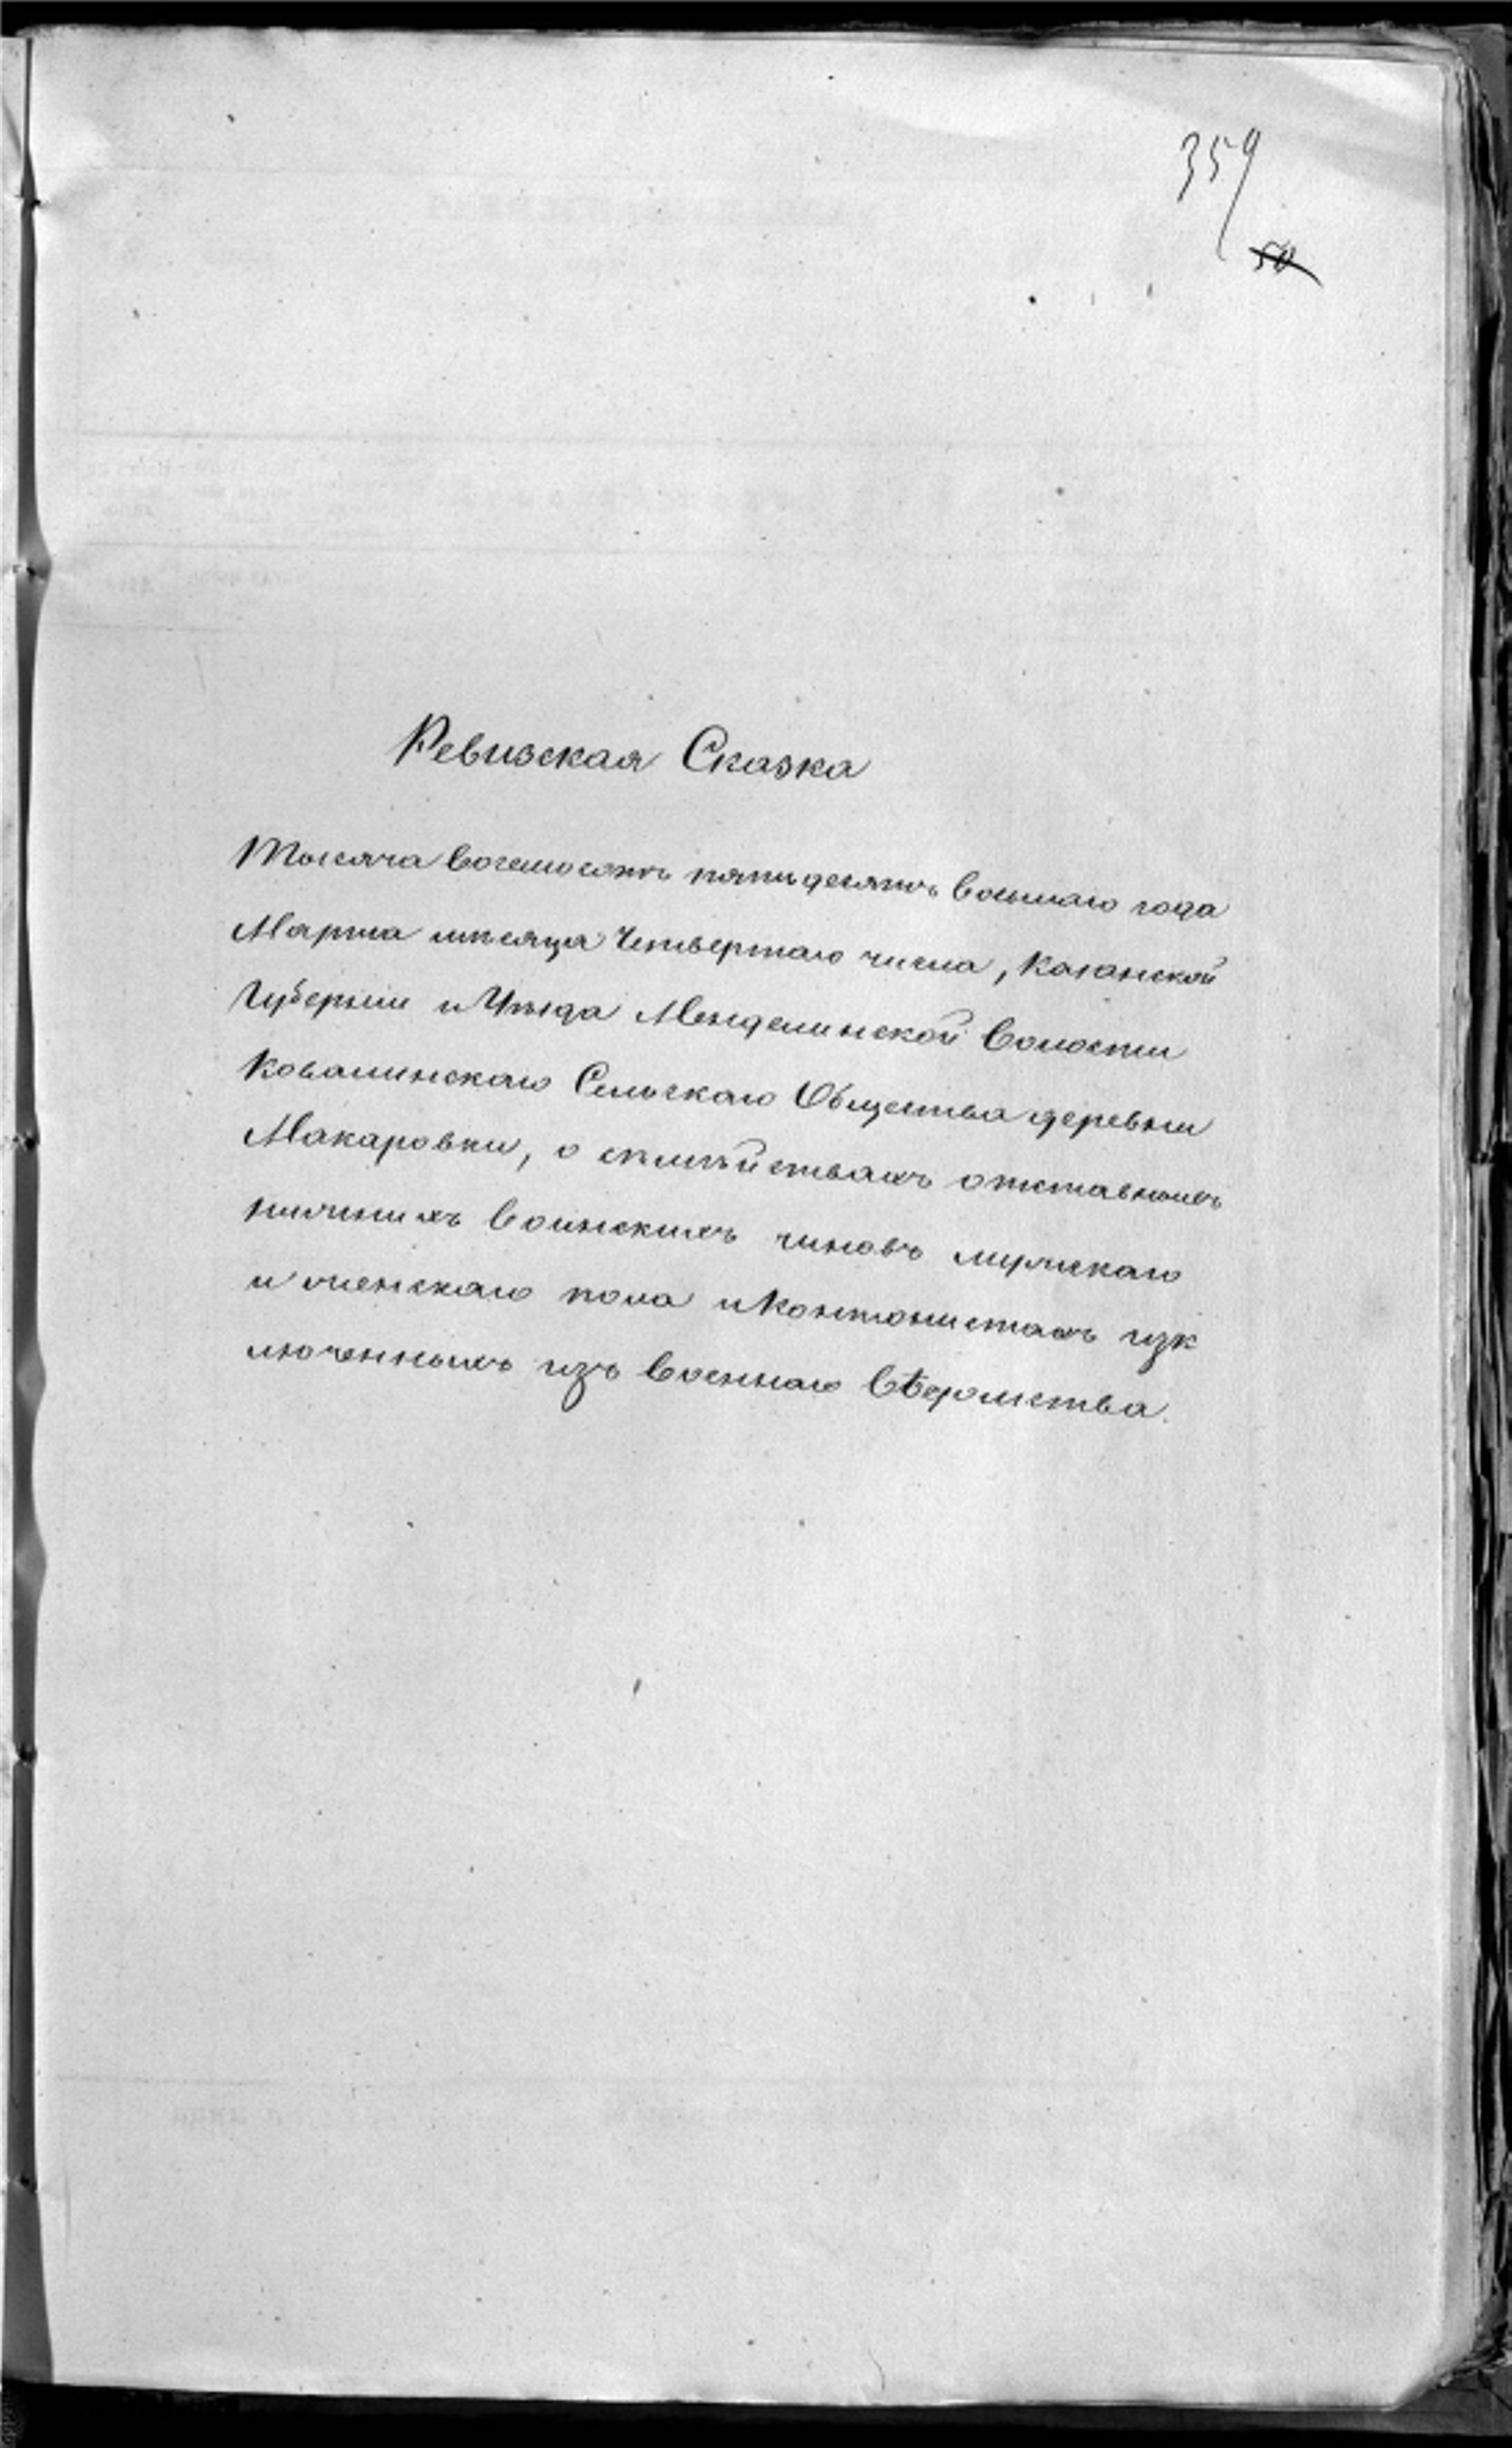 359
50
Ревизская Сказка
Тысяча восемьсотъ пятьдесятъ восьмаго года
Марта мѣсяца Четвертаго числа, Казанской
Губерніи и Уѣзда Менделинской Волости
Ковалинскаго Сельскаго Общества деревни
Макаровки, о сѣмѣйствахъ отставныхъ
нижнихъ воинскихъ чиновъ мужскаго
и женскаго пола и Контонистахъ изк
люченныхъ изъ военнаго вѣдомства.